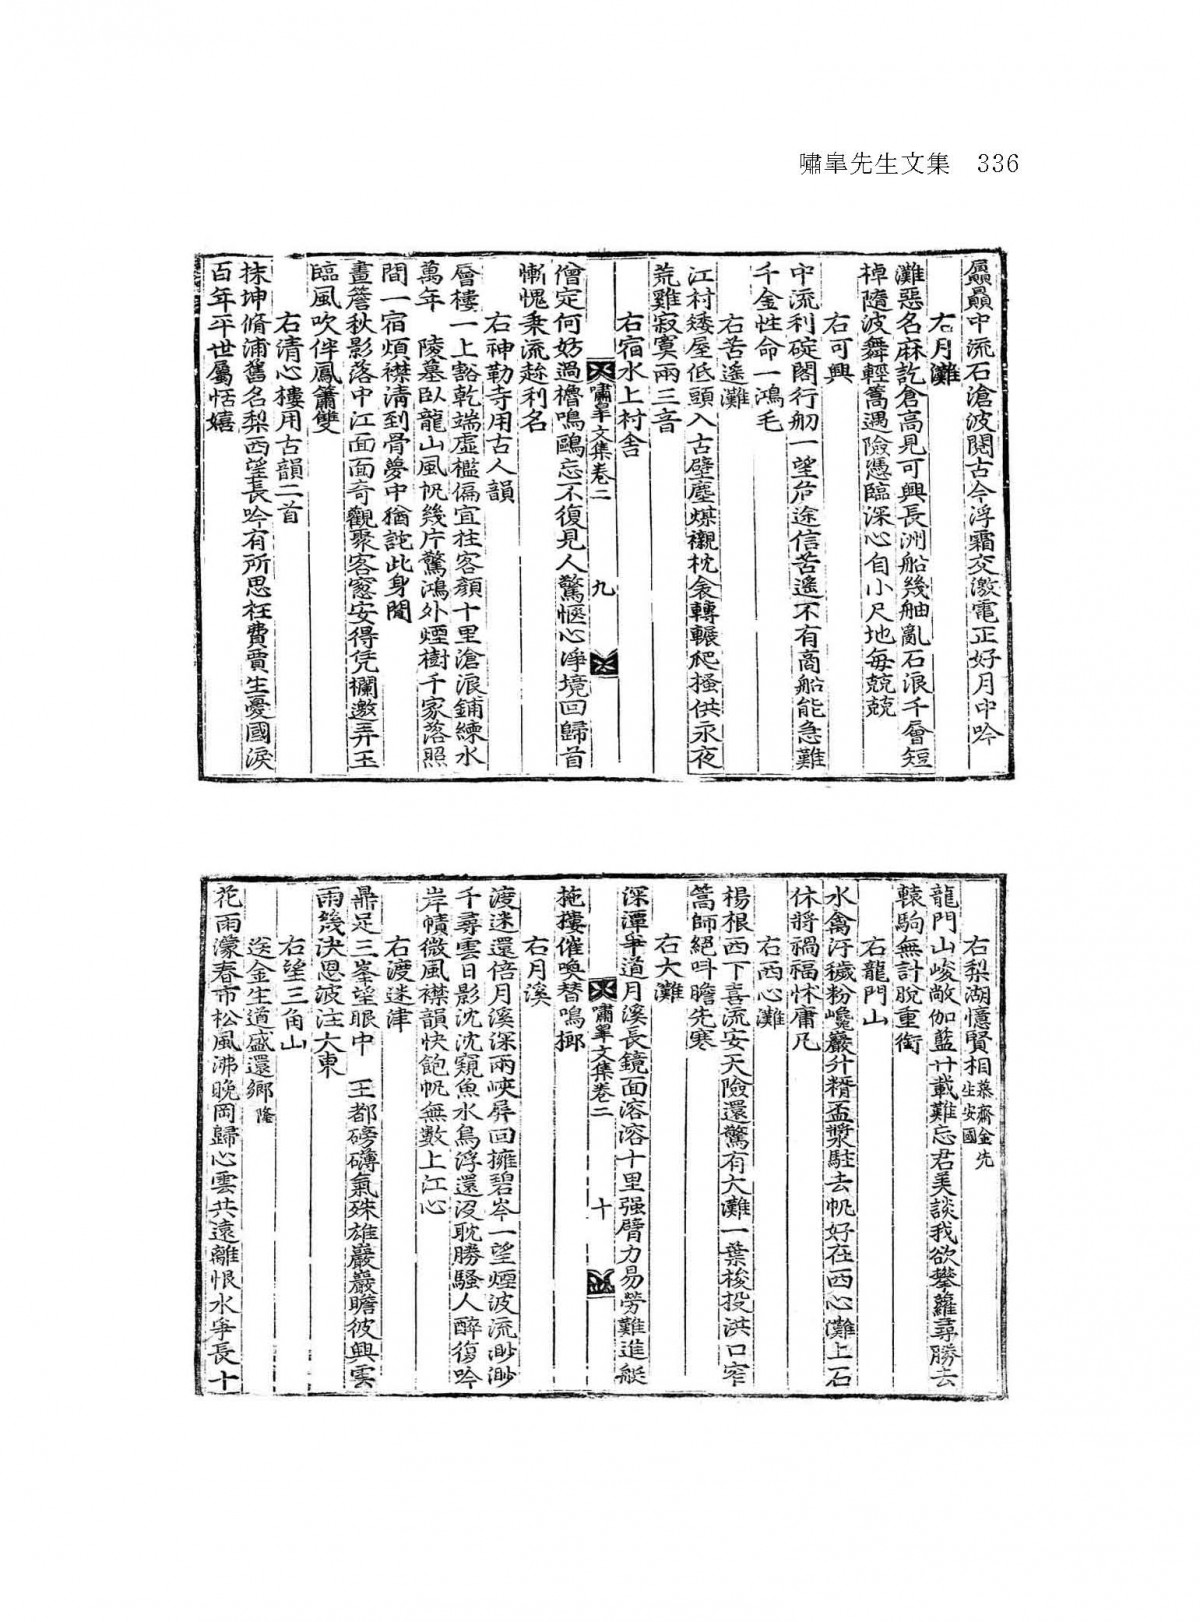 嘯皐先生文集　336
贔贔中流石滄波閱古今浮霜交激電正好月中吟
右月灘
灘惡名麻訖倉高見可興長洲船幾舳亂石浪千層短
棹隨波舞輕篙遇險憑臨深心自小尺地每兢兢
右可興
中流利碇閣行舠一望危途信苦遙不有商船能急難
千金性命一鴻毛
右苦遙灘
江村矮屋低頭入古壁塵煤襯枕衾轉輾爬搔供永夜
荒雞寂寞兩三音
右宿水上村舍
嘯皐文集卷二
九
僧定何妨過櫓鳴鷗忘不復見人驚愜心淨境回歸首
慚愧乘流趂利名
右神勒寺用古人韻
層樓一上豁乾端虛檻偏宜拄客顏十里滄浪鋪練水
萬年　陵墓臥龍山風帆幾片驚鴻外煙樹千家落照
間一宿煩襟淸到骨夢中猶詫此身閒
畫簷秋影落中江面面奇觀聚客窓安得凭欄邀弄玉
臨風吹伴鳳簫雙
右淸心樓用古韻二首
抹坤脩浦舊名梨西望長吟有所思枉費賈生憂國淚
百年平世屬恬嬉
右梨湖憶賢相慕齋金先生安國
龍門山峻敞伽藍廾載難忘君美談我欲攀蘿尋勝去
轅駒無計脫重銜
右龍門山
水禽汙穢粉巉巖升糈盃漿駐去帆好在西心灘上石
休將禍福怵庸凡
右西心灘
楊根西下喜流安天險還驚有大灘一葉梭投洪口窄
篙師絕叫膽先寒
右大灘
深潭爭道月溪長鏡面溶溶十里强臂力易勞難進艇
拖摟催喚替鳴榔
嘯皐文集卷二
十
右月溪
渡迷還倍月溪深兩峽屛回擁碧岑一望煙波流渺渺
千尋雲日影沈沈窺魚水鳥浮還沒耽勝騷人醉復吟
岸幘微風襟韻快飽帆無數上江心
右渡迷津
鼎足三峯望眼中　王都磅礴氣殊雄巖巖瞻彼興雲
雨幾決恩波注大東
右望三角山
送金生道盛還鄕隆
花雨濛春市松風沸晩岡歸心雲共遠離恨水爭長十